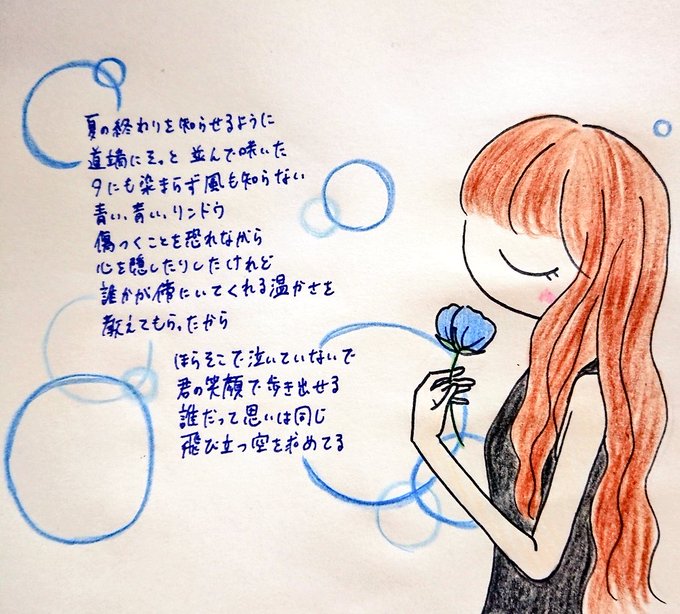 夏の終わりを知らせるように
道端にそっと 並んで咲いた
夕にも染まらず風も知らない
青い、青い、リンドウ
傷つくことを恐れながら
心を隠したりしたけれど
誰かが傍にいてくれる温かさを
教えてもらったから
ほらそこで泣いていないで
君の笑顔で歩き出せる
誰だって思いは同じ
飛び立つ空を求めてる